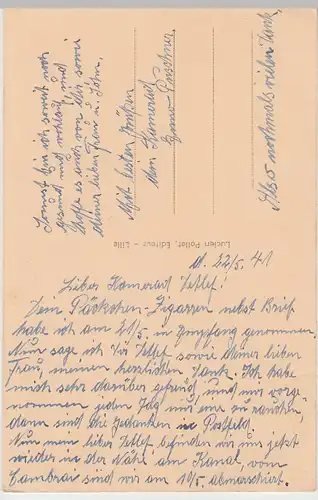 d. 22/5. 41
Lieber Kamerad Detlef!
Dein Päckchen-Zigarren nebst Brief
habe ich am 21/5. in Empfang genommen.
Nun sage ich Dir Detlef sowie deiner lieben
Frau, meinen herzlichen Dank. Ich habe
mich sehr darüber gefreut, und mir vorge-
nommen jeden Tag nur eine zu rauchen,
dann sind die Gedanken in
Nun mein lieber Detlef befinden wir uns jetzt
wieder in der Nähe am Kanal, vom
Cambrai sind wir am 10/5. abmarschiert.
Sonst bin ich soweit noch
gesund und wohlauf, und
hoffe es auch von Dir sowie
deiner lieben Frau u. Sohn.
Mit besten Grüßen
dein Kamerad
Also nochmals vielen Dank
Lucien Pollet, Editeur - Lille